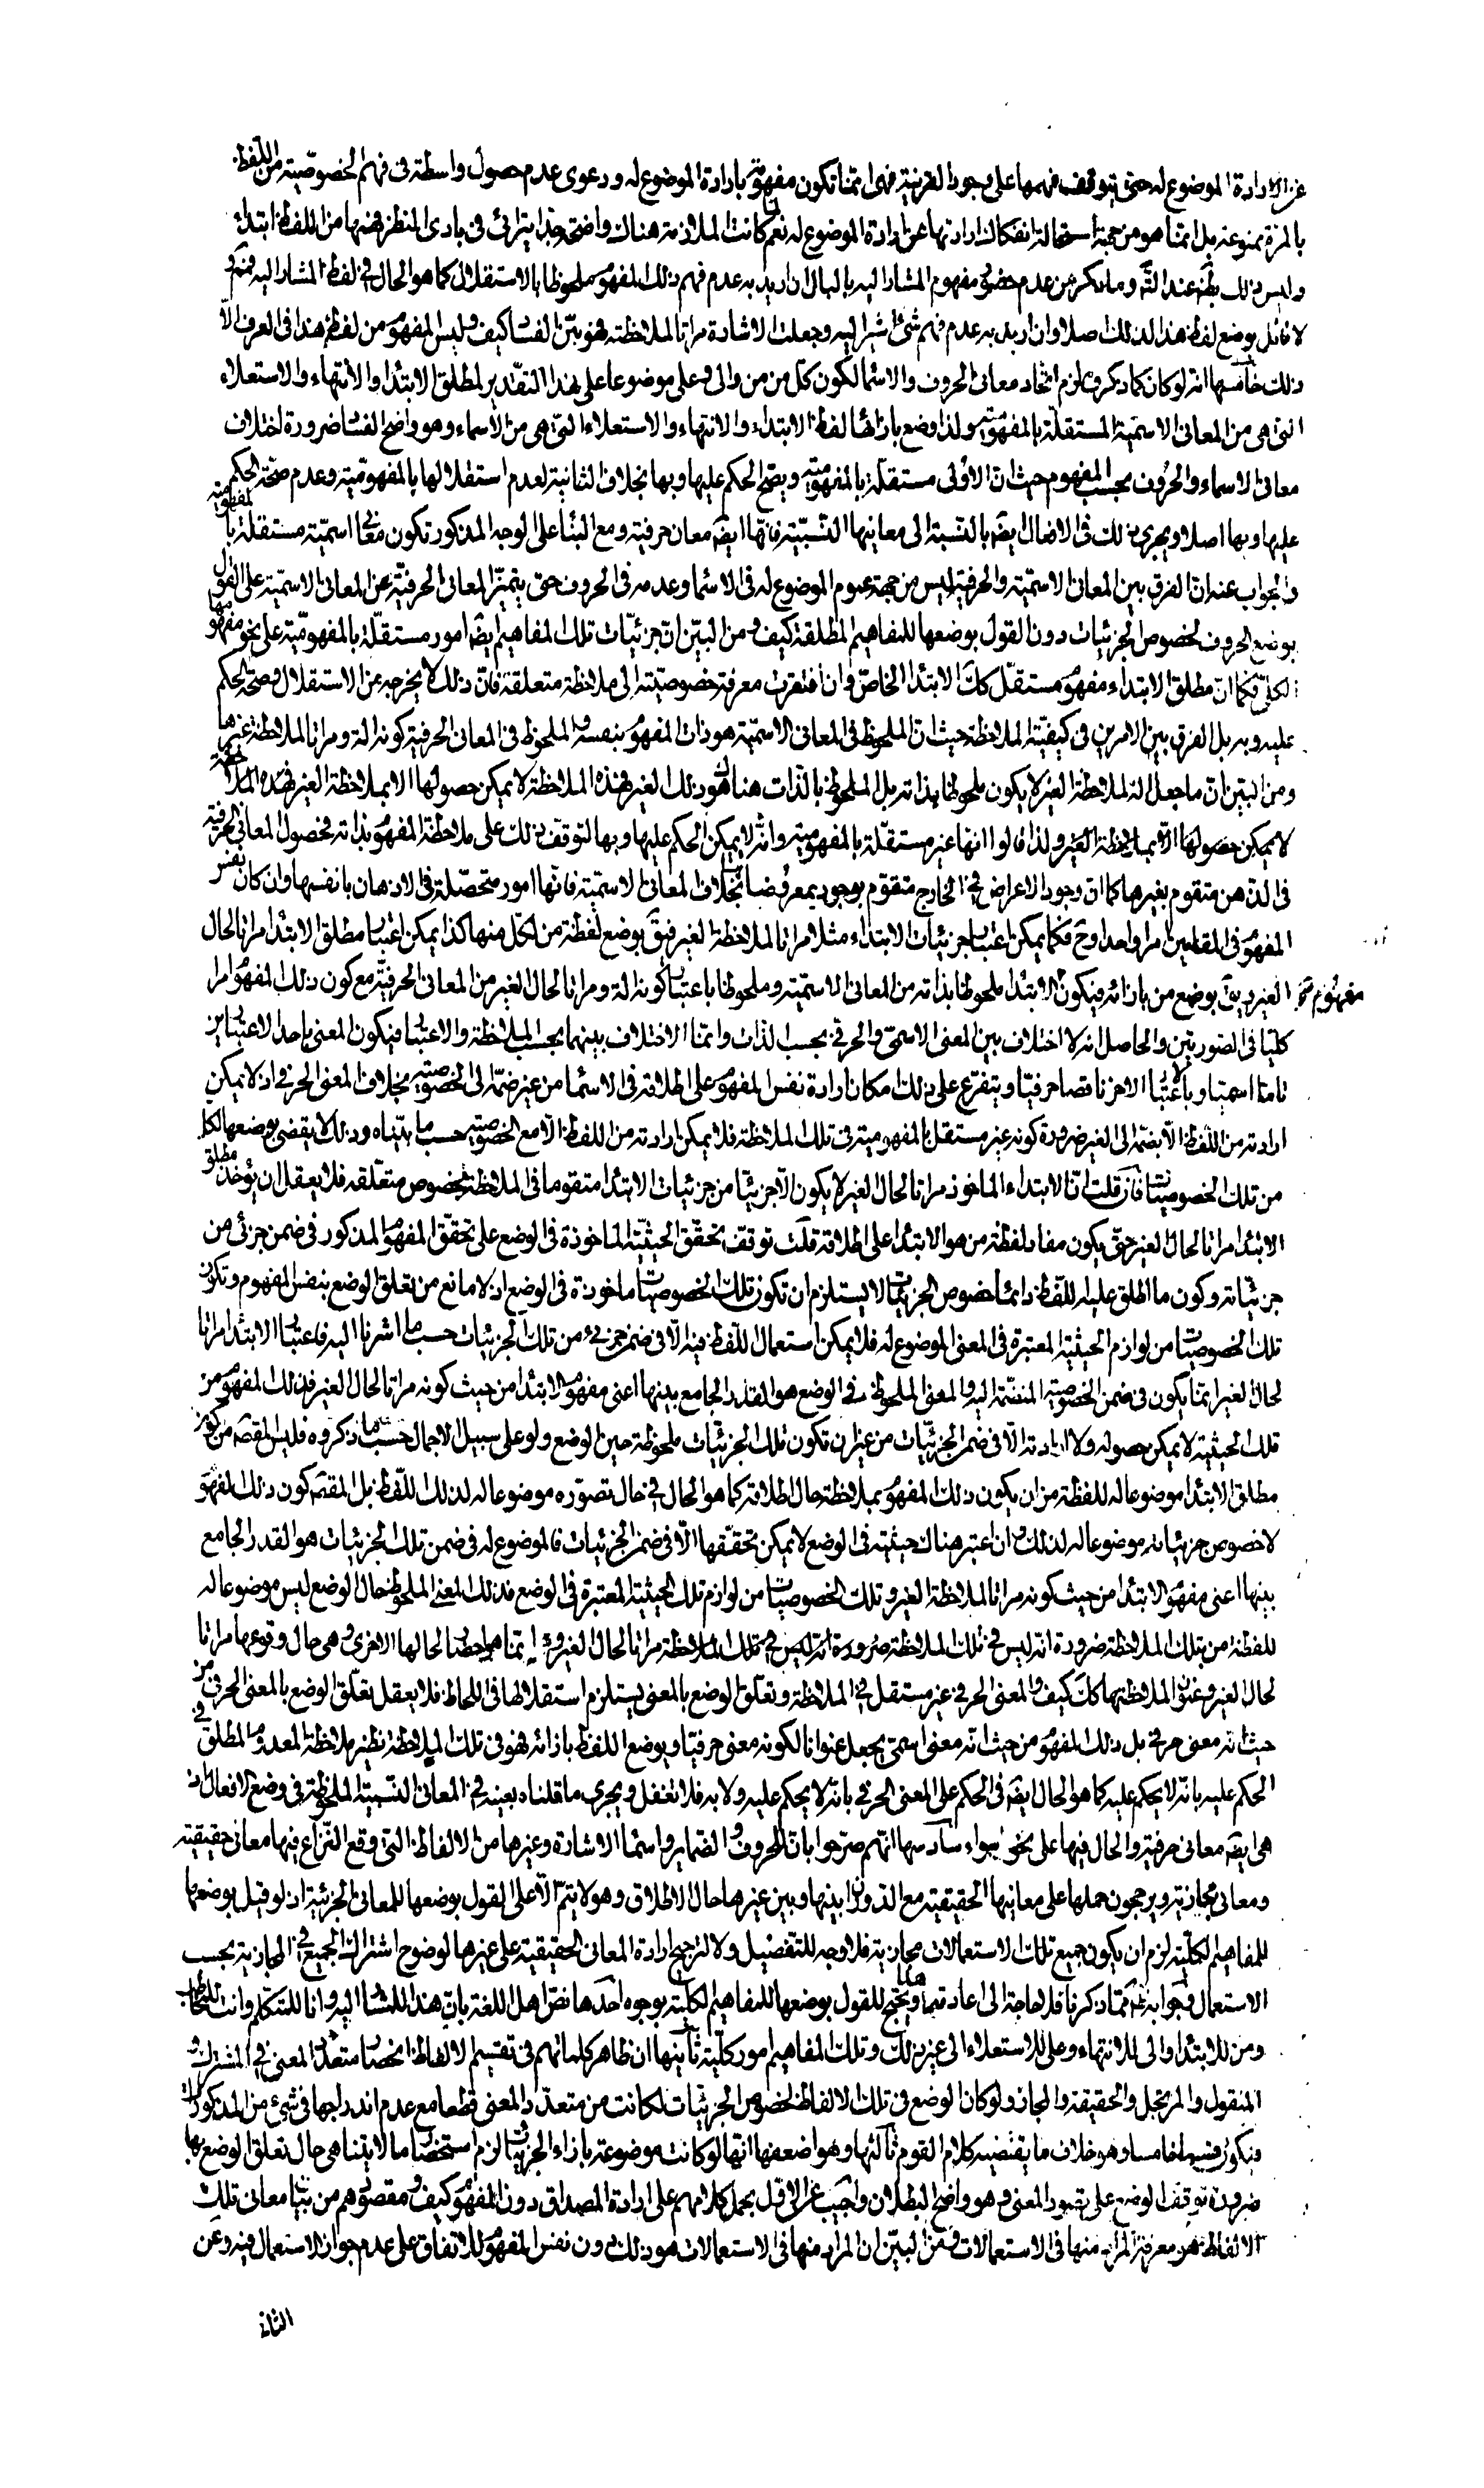 عن الارادة الموضوع له حتى يتوقف فهمها على وجود القرينة فهى انما تكون مفهومة بارادة الموضوع له ودعوى عدم حصول واسطة فى فهم الخصوصية من اللفظ
بالمرة ممنوعة بل انما هو من جهة استحالة انفكاك ارادتها عن ارادة الموضوع له نعم لما كانت الملازمة هناك واضحة جدا يترائى فى بادى النظر فهمها من اللفظ ابتداء
وليس ذلك بحجة عند التأمل وما ذكر من عدم خطور مفهوم المشار اليه بالبال ان اريد به عدم فهم ذلك المفهوم ملحوظا بالاستقلال كما هو الحال فى لفظ المشار اليه فمم و
لا قائل بوضع لفظ هذا لذلك اصلا وان اريد به عدم فهم شئ اشير اليه وجعلت الاشارة مراتا لملاحظته فهو بين الفساد كيف وليس المفهوم من لفظ هذا فى العرف الا
ذلك خامسها انه لو كان كما ذكروه لزم اتحاد معانى الحروف والاسماء لكون كل من من والى وعلى موضوعا على هذا التقدير لمطلق الابتداء والانتهاء والاستعلاء
التى هى من المعانى الاسمية المستقلة بالمفهومية ولذا وضع بازائها لفظ الابتداء والانتهاء والاستعلاء التى هى من الاسماء وهو واضح الفساد ضرورة اختلاف
معانى الاسماء والحروف بحسب المفهوم حيث ان الاولى مستقلة بالمفهومية ويصح الحكم عليها وبها بخلاف الثانية لعدم استقلالها بالمفهومية وعدم صحة الحكم
عليها وبها اصلا ويجرى ذلك فى الافعال ايضا بالنسبة الى معانيها النسبية فانها ايضا معان حرفية ومع البناء على الوجه المذكور تكون معانى اسمية مستقلة بالمفهومية
والجواب عنه ان الفرق بين المعانى الاسمية والحرفية ليس من جهة عموم الموضوع له فى الاسماء وعدمه فى الحروف حتى يتميز المعانى الحرفية عن المعانى الاسمية على القول
بوضع الحروف لخصوص الجزئيات دون القول بوضعها للمفاهيم المطلقة كيف ومن البين ان جزئيات تلك المفاهيم ايضا امور مستقلة بالمفهومية على نحو مفهومها
الكلى فكما ان مطلق الابتداء مفهوم مستقل كك الابتداء الخاص وان افتقرت معرفة خصوصيته الى ملاحظة متعلقة فان ذلك لا يخرجه عن الاستقلال وصحة الحكم
عليه وبه بل الفرق بين الامرين فى كيفية الملاحظة حيث ان الملحوظ فى المعانى الاسمية هو ذات المفهوم بنفسه والملحوظ فى المعانى الحرفية كونه الة ومراتا لملاحظة غيرها
ومن البين ان ما جعل الة لملاحظة الغير لا يكون ملحوظا بذاته بل الملحوظ بالذات هناك هو ذلك الغير فهذه الملاحظة لا يمكن حصولها الا بملاحظة الغير فهذه الملاحظة
لا يمكن حصولها الا بملاحظة الغير ولذا قالوا انها غير مستقلة بالمفهومية وانه لا يمكن الحكم عليها وبها لتوقف ذلك على ملاحظة المفهوم بذاته فحصول المعانى الحرفية
فى الذهن متقوم بغيرها كما ان وجود الاعراض فى الخارج متقوم بوجود معروضاتها بخلاف المعانى الاسمية فانها امور متحصلة فى الاذهان بانفسها وان كان نفس
المفهوم فى المقامين امرا واحدا وح فكما يمكن اعتبار جزئيات الابتداء مثلا مراتا لملاحظة الغير فيق بوضع لفظة من لكل منها كذا يمكن اعتبار مطلق الابتداء مراتا لحال
الغير ويق بوضع من بازائه فيكون الابتداء ملحوظا بذاته من المعانى الاسمية وملحوظا باعتبار كونه الة ومراتا لحال الغير من المعانى الحرفية مع كون ذلك المفهوم امرا
مفهوم خ
كليا فى الصورتين والحاصل انه لا اختلاف بين المعنى الاسمى والحرفى بحسب الذات وانما الاختلاف بينهما بحسب الملاحظة والاعتبار فيكون المعنى باحد الاعتبارين
تاما اسميا وبالاعتبار الاخر ناقصا حرفيا ويتفرع على ذلك امكان ارادة نفس المفهوم على اطلاقه فى الاسماء من غير ضمه الى الخصوصية بخلاف المعنى الحرفى اذ لا يمكن
ارادته من اللفظ الا بضمه الى الغير ضرورة كونه غير مستقل بالمفهومية فى تلك الملاحظة فلا يمكن ارادته من اللفظ الا مع الخصوصية حسب ما بيناه وذلك لا يقضى بوضعها لكل
من تلك الخصوصيات فان قلت ان الابتداء الماخوذ مراتا لحال الغير لا يكون الا جزئيا من جزئيات الابتداء متقوما فى الملاحظة بخصوص متعلقه فلا يعقل ان يؤخذ مطلق
الابتداء مراتا لحال الغير حتى يكون مفاد لفظة من هو الابتداء على اطلاقه قلت توقف تحقق الحيثية الماخوذة فى الوضع على تحقق المفهوم المذكور فى ضمن جزئى من
جزئياته وكون ما اطلق عليه اللفظ دائما خصوص الجزئيات لا يستلزم ان تكون تلك الخصوصيات ماخوذة فى الوضع اذ لا مانع من تعلق الوضع بنفس المفهوم وتكون
تلك الخصوصيات من لوازم الحيثية المعتبرة فى المعنى الموضوع له فلا يمكن استعمال اللفظ فيه الا فى ضمن جزئى من تلك الجزئيات حسب ما اشرنا اليه فاعتبار الابتداء مراتا
لحال الغير انما يكون فى ضمن الخصوصية المنضمة اليه والمعنى الملحوظ فى الوضع هو القدر الجامع بينها اعنى مفهوم الابتداء من حيث كونه مراتا لحال الغير فذلك المفهوم من
تلك الحيثية لا يمكن حصوله ولا ارادته الا فى ضمن الجزئيات من غير ان تكون تلك الجزئيات ملحوظة حين الوضع ولو على سبيل الاجمال حسب ما ذكروه فليس المقصود من كون
مطلق الابتداء موضوعا له للفظة من ان يكون ذلك المفهوم بملاحظة حال اطلاقه كما هو الحال فى حال تصوره موضوعا له لذلك اللفظ بل المقصود كون ذلك المفهوم
لا خصوص جزئياته موضوعا له لذلك وان اعتبر هناك حيثية فى الوضع لا يمكن تحققها الا فى ضمن الجزئيات فالموضوع له فى ضمن تلك الجزئيات هو القدر الجامع
بينها اعنى مفهوم الابتداء من حيث كونه مراتا لملاحظة الغير وتلك الخصوصيات من لوازم تلك الحيثية المعتبرة فى الوضع فذلك المعنى الملحوظ حال الوضع ليس موضوعا له
للفظة من بتلك الملاحظة ضرورة انه ليس فى تلك الملاحظة ضرورة انه ليس فى تلك الملاحظة مراتا لحال الغير انما هو لحالها الاخرى وهى حال وقوعها مراتا
لحال الغير وعنوان لملاحظتها كك كيف والمعنى الحرفى غير مستقل فى الملاحظة وتعلق الوضع بالمعنى يستلزم استقلالها فى اللحاظ فلا يعقل تعلق الوضع بالمعنى الحرفى من
حيث انه معنى حرفى بل ذلك المفهوم من حيث انه معنى اسمى يجعل عنوانا لكونه معنى حرفيا ويوضع اللفظ بازائه فهو فى تلك الملاحظة نظير ملاحظة المعدوم المطلق فى
الحكم عليه بانه لا يحكم عليه كما هو الحال ايضا فى الحكم على المعنى الحرفى بانه لا يحكم عليه ولا به فلا تغفل ويجرى ما قلناه بعينه فى المعانى النسبية الملحوظة فى وضع الافعال اذ
هى ايضا معانى حرفية والحال فيها على نحو سواء سادسها انهم صرحوا بان للحروف والضماير واسماء الاشارة وغيرها من الالفاظ التى وقع النزاع فيها معانى حقيقية
ومعانى مجازية ويرجحون حملها على معانيها الحقيقية مع الدوران بينها وبين غيرها حال الاطلاق وهو لا يتم الا على القول بوضعها للمعانى الجزئية اذ لو قيل بوضعها
للمفاهيم الكلية لزم ان يكون جميع تلك الاستعمالات مجازية فلا وجه للتفصيل ولا لترجيح ارادة المعانى الحقيقية على غيرها لوضوح اشتراك الجميع فى المجازية بحسب
الاستعمال وجوابه مما ذكرنا فلا حاجة الى اعادته هذا ويحتج للقول بوضعها للمفاهيم الكلية بوجوه احدها نص اهل اللغة بان هذا للمشار اليه وانا للمتكلم وانت للمخاطب
ومن للابتداء والى للانتهاء وعلى للاستعلاء الى غير ذلك وتلك المفاهيم امور كلية ثانيها ان ظاهر كلماتهم فى تقسيم الالفاظ انحصار متعدد المعنى فى المشترك و
المنقول والمرتجل والحقيقة والمجاز ولو كان الوضع فى تلك الالفاظ لخصوص الجزئيات لكانت من متعدد المعنى قطعا مع عدم اندراجها فى شئ من المذكورات
ويكون قسما خامسا وهو خلاف ما يقتضيه كلام القوم ثالثها وهو اضعفها انها لو كانت موضوعة بازاء الجزئيات لزم استحضار ما لا يتناهى حال تعلق الوضع بها
ضرورة توقف الوضع على تصور المعنى وهو واضح البطلان واجيب عن الاول بحمل كلامهم على ارادة المصداق دون المفهوم كيف ومقصودهم من بيان معانى تلك
الالفاظ هو معرفة المراد منها فى الاستعمالات فمن البين ان المراد منها فى الاستعمالات هو ذلك دون نفس المفهوم للاتفاق على عدم جواز الاستعمال فيه وعن
الثانى